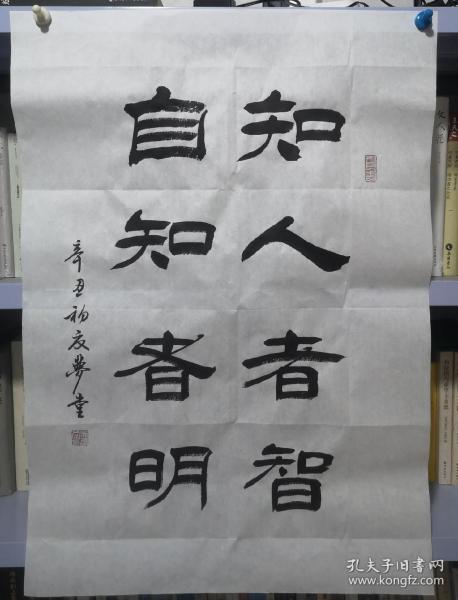 知人者智
自知者明
辛丑初夏夢堂
孔夫子旧书网
www.kongfz.com